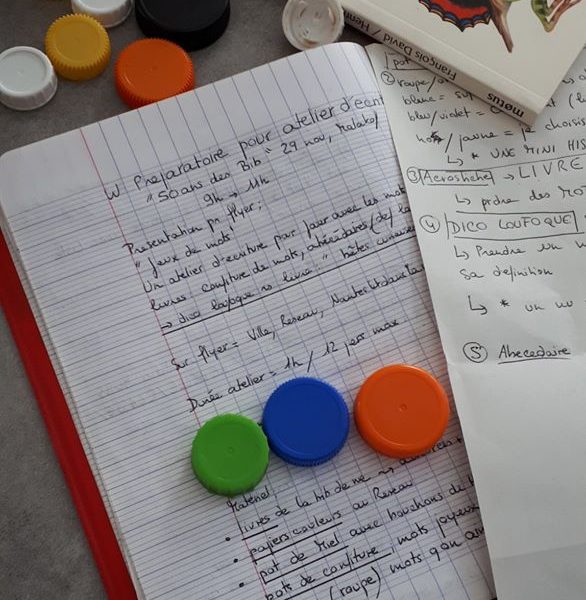 François David / Henri
møtus
W Preparatoire pour atelier d'écrit
"50 ans des Bib" = 29 nov, Malakof
9h → 11h
Presentation pr flyer :
"Jeux de mots"
Un atelier d'écriture pour jouer avec les mots
livres confiture de mots, abécédaires (de) la
→ dico loufoque
Sur flyer = Ville, Reseau, Nantes
Durée atelier = 1h / 12 pers max
Materiel
• livres de la bib de
• papiers couleurs au Reseau
• pot de miel avec bouchons de
• pots de confiture, mots joyeux
(rouge) mots qu'on
② rouge/
blanc =
bleu/violet =
/jaune = je choisis
↳ * UNE MINI HIS
③ Acrostiche → LIVRE
↳ prdre des mo
④ DICO LOUFOQUE
↳ Prendre un
sa definition
↳ * un
⑤ Abecedaire